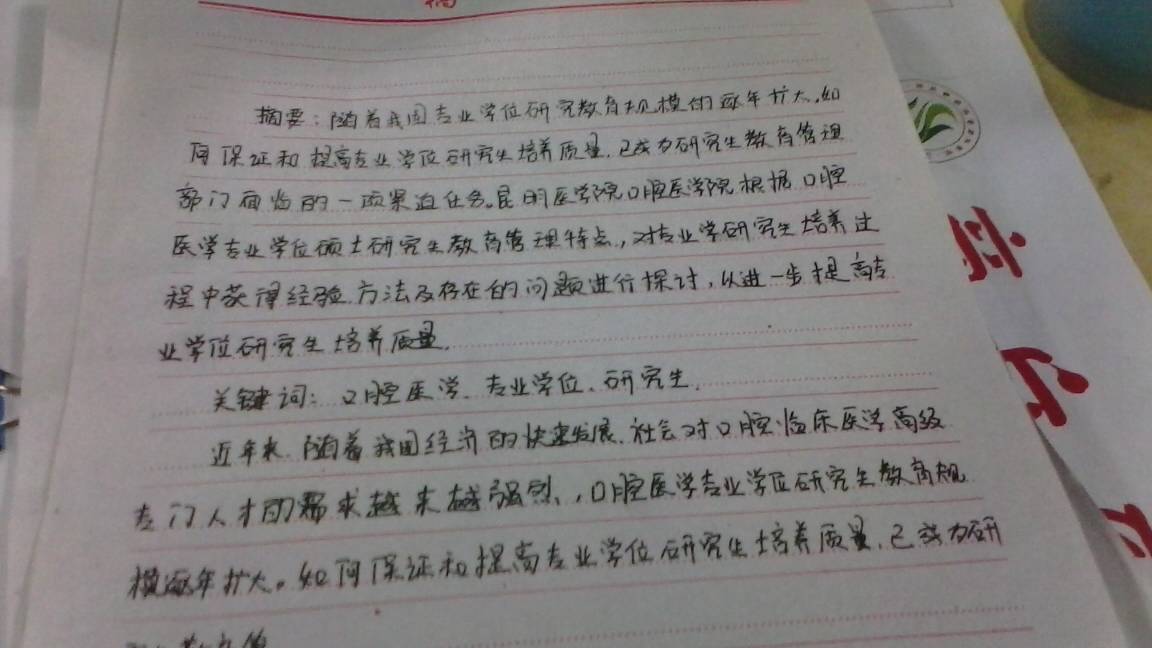 稿
摘要：随着我国专业学位研究教育规模的逐年扩大，如
何保证和提高专业学位研究生培养质量，已成为研究生教育管理
部门面临的一项紧迫任务。昆明医学院口腔医学院根据口腔
医学专业学位硕士研究生教育管理特点，对专业学研究生培养过
程中获得经验方法及存在的问题进行探讨，以进一步提高专
业学位研究生培养质量。
关键词：口腔医学、专业学位、研究生。
近年来，随着我国经济的快速发展，社会对口腔临床医学高级
专门人才的需求越来越强烈，口腔医学专业学位研究生教育规
模逐年扩大。如何保证和提高专业学位研究生培养质量，已成为研